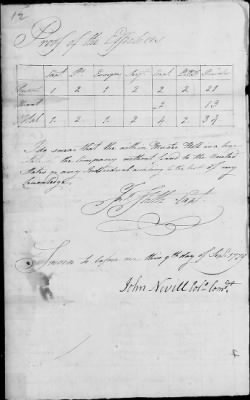 12
Proof of the Effectives
Capt Lts Ensigns Serjt Corpl Privates
Present 1 2 1 2 2 2 21
Absent 2 13
Total 1 2 1 2 4 2 34
I do swear that the within Muster Roll is a true
State of the Company without fraud to the United
States or any Individual according to the best of my
Knowledge
Capt
Sworn to before me this 9th day of 1779
John Nevill Col. Comdt.